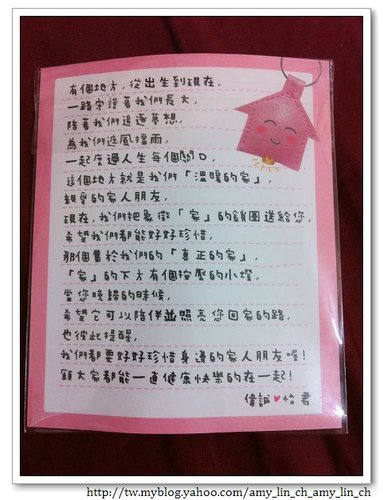 有個地方，從出生到現在，
一路守護著我們長大，
陪著我們追逐夢想，
為我們遮風擋雨，
一起度過人生每個關口，
這個地方就是我們「溫暖的家」，
親愛的家人朋友，
現在，我們把象徵「家」的鎖圈送給您，
希望我們都能好好珍惜，
那個屬於我們的「真正的家」，
「家」的下方有個按壓的小燈，
當您晚歸的時候，
希望它可以陪伴並照亮您回家的路，
也彼此提醒，
我們都要好好珍惜身邊的家人朋友喔！
願大家都能一直健康快樂的在一起！
偉誠♥怡君
http://tw.myblog.yahoo.com/amy_lin_ch_amy_lin_ch